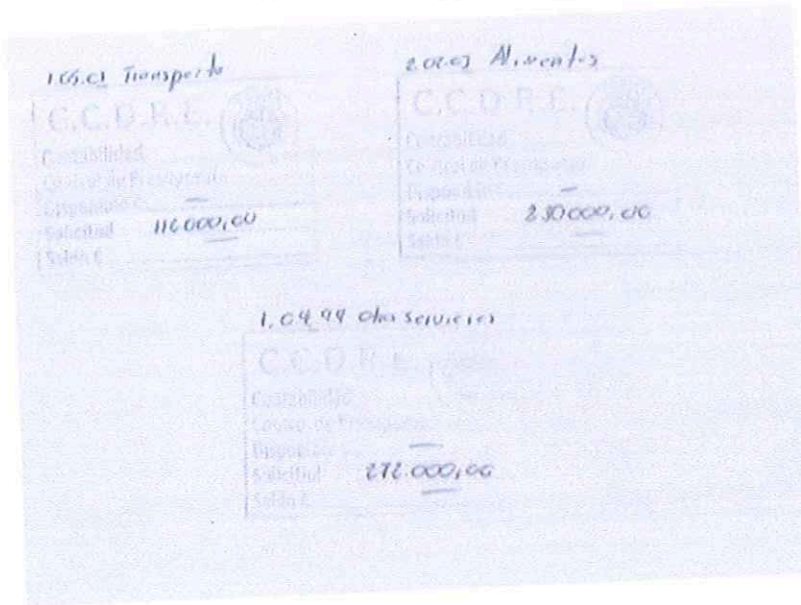 Transporte
C.C.D.R.E.
Contabilidad
Control de Presupuesto
Disponible ¢ —
Solicitud 116000,00
Saldo ¢ —
2.02.03 Alimentos
C.C.D.R.E.
Contabilidad
Control de Presupuesto
Disponible ¢ —
Solicitud 230000,00
Saldo ¢ —
1.04.99 Otros servicios
C.C.D.R.E.
Contabilidad
Control de Presupuesto
Disponible ¢ —
Solicitud 272.000,00
Saldo ¢ —